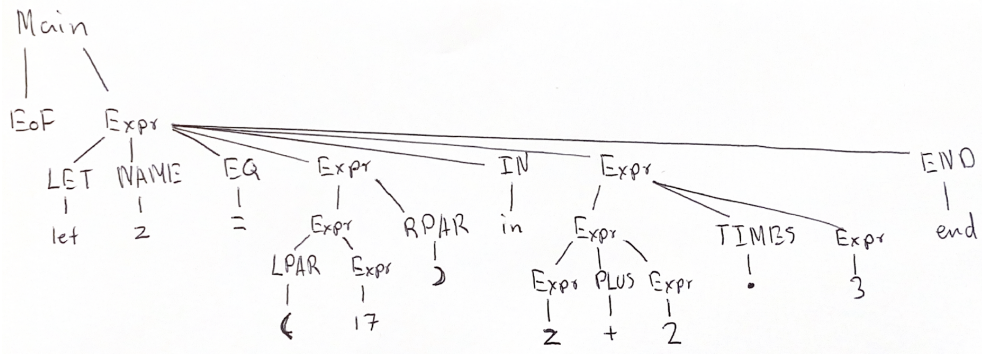 Main
EOF Expr
LET NAME EQ Expr IN Expr END
let z = Expr RPAR in Expr TIMES Expr end
LPAR Expr ) Expr PLUS Expr • 3
( 17 z + 2